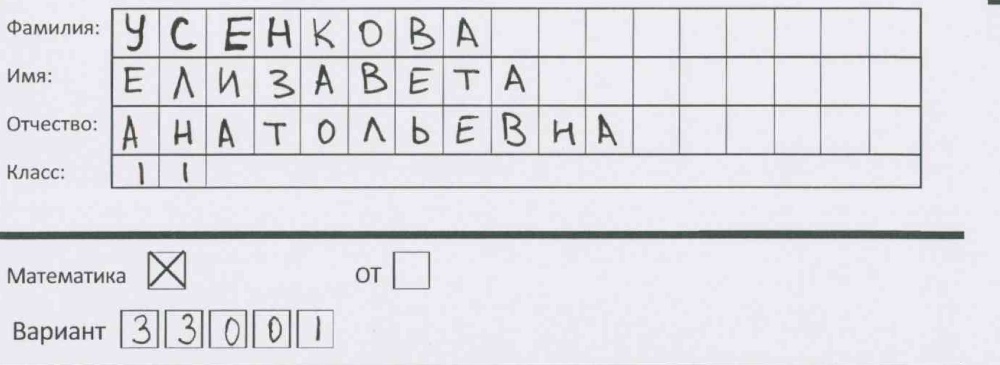 Фамилия: УСЕНКОВА
Имя: ЕЛИЗАВЕТА
Отчество: АНАТОЛЬЕВНА
Класс: 11
Математика ☒ ОТ ☐
Вариант 33001